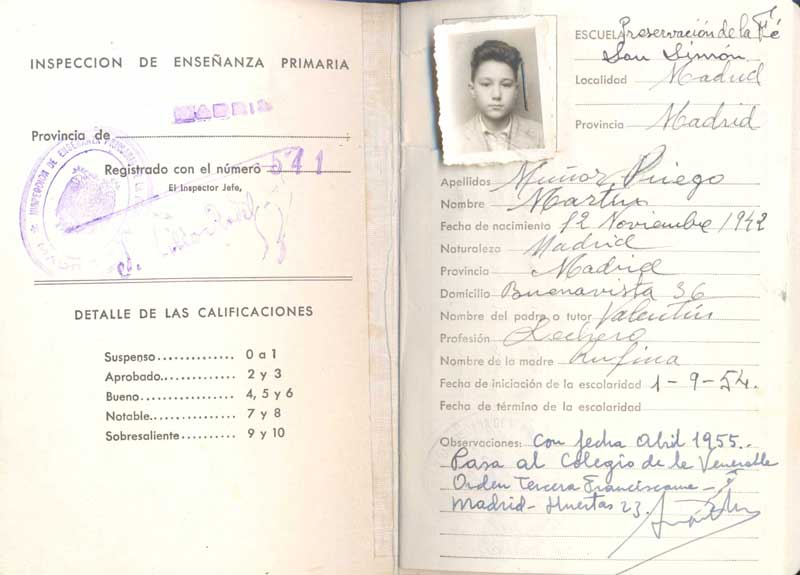 INSPECCION DE ENSEÑANZA PRIMARIA
MADRID
Provincia de
Registrado con el número 541
El Inspector Jefe,
INSPECCION DE ENSEÑANZA PRIMARIA
DETALLE DE LAS CALIFICACIONES
Suspenso............... 0 a 1
Aprobado............... 2 y 3
Bueno.................. 4, 5 y 6
Notable................ 7 y 8
Sobresaliente.......... 9 y 10
ESCUELA Preservación de la Fé
San Simón
Localidad Madrid
Provincia Madrid
Apellidos Muñoz Priego
Nombre Martín
Fecha de nacimiento 12 Noviembre 1942
Naturaleza Madrid
Provincia Madrid
Domicilio Buenavista 36
Nombre del padre o tutor Valentín
Profesión Lechero
Nombre de la madre Rufina
Fecha de iniciación de la escolaridad 1-9-54.
Fecha de término de la escolaridad
Observaciones: Con fecha Abril 1955..
Pasa al Colegio de la Venerable
Orden Tercera Franciscana -
Madrid - Huertas 23.